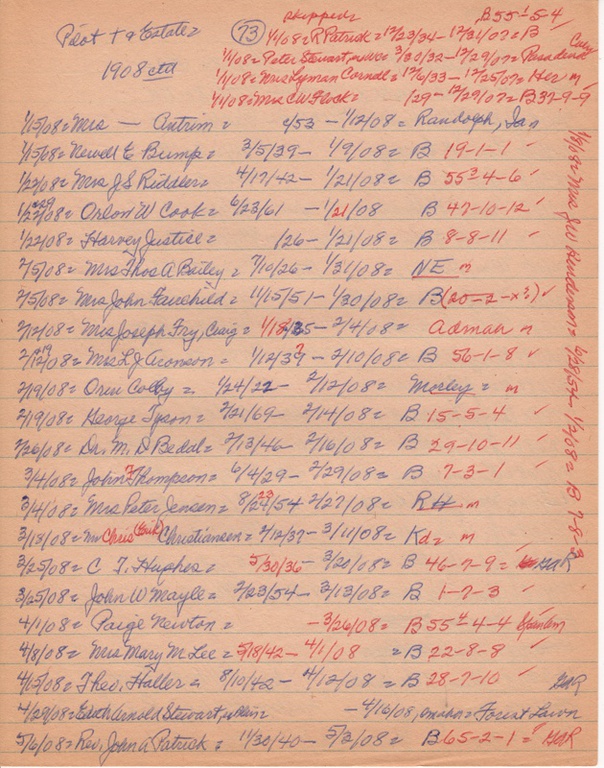 Pilot + a Estate =
1908 ctd
73
skipped
1/1/08 = R Patrick = 12/23/34 - 12/31/07 = B 55-1-5-4
1/1/08 = Peter Stewart, 3/30/32 - 12/29/07 = Pasadena Cal
1/1/08 = Mrs Lyman Cornell = 12/6/33 - 12/25/07 = Her m
1/1/08 = Mrs CW Flock = /29 - 12/29/07 = B 37-9-9
1/15/08 = Mrs — Antrim = /53 - 1/12/08 = Randolph, Ia m
1/15/08 = Newell E Bump = 3/5/39 - 1/9/08 = B 19-1-1 ✓
1/22/08 = Mrs J S Riddler = 4/17/42 - 1/21/08 = B 55³ 4-6 ✓
1/22/08 = Orlon W Cook = 6/23/61 - 1/21/08 B 47-10-12 ✓
1/22/08 = Harvey Justise = /26 - 1/21/08 = B 8-8-11 ✓
2/5/08 = Mrs Thos A Bailey = 7/10/26 - 1/31/08 = NE m
2/5/08 = Mrs John Fairchild = 11/15/51 - 1/30/08 = B (20-2-x?) ✓
2/12/08 = Mrs Joseph Fry, Craig = 1/18/35 - 2/4/08 = Admah m
2/12/08 = Mrs L J Aronson = 1/12/39? - 2/10/08 = B 56-1-8 ✓
2/19/08 = Oren Colby = 1/24/22 - 2/12/08 = Morley = m
2/19/08 = George Tyson = 2/21/69 - 2/14/08 = B 15-5-4 ✓
2/26/08 = Dr. M. D Bedal = 2/13/46 - 2/16/08 = B 29-10-11 ✓
3/4/08 = John ? Thompson = 6/4/29 - 2/29/08 = B 7-3-1 ✓
3/4/08 = Mrs Peter Jensen = 8/24/54 23 2/27/08 = RH m
3/18/08 = Mr Chris Christiansen = 2/12/37 - 3/11/08 = Kd = m
3/25/08 = C T. Hughes = 5/30/36 - 3/20/08 = B 46-7-9 = GAR
3/25/08 = John W Mayle = 2/23/54 - 3/13/08 = B 1-7-3 ✓
4/1/08 = Paige Newton = - 3/26/08 = B 55⁴-4-4 Span Am
4/8/08 = Mrs Mary M. Lee = 5/18/42 - 4/1/08 = B 22-8-8 ✓
4/15/08 = Theo. Haller = 8/10/42 - 4/12/08 = B 28-7-10 ✓ GAR
4/29/08 = Edith Arnold Stewart, - 4/16/08, Omaha = Forest Lawn
5/6/08 = Rev. John A Patrick = 11/30/40 - 5/3/08 = B 65-2-1 = GAR
1/8/08 = Mrs J W Henderson = 6/28/54 - 1/2/08 = B 7-8-3